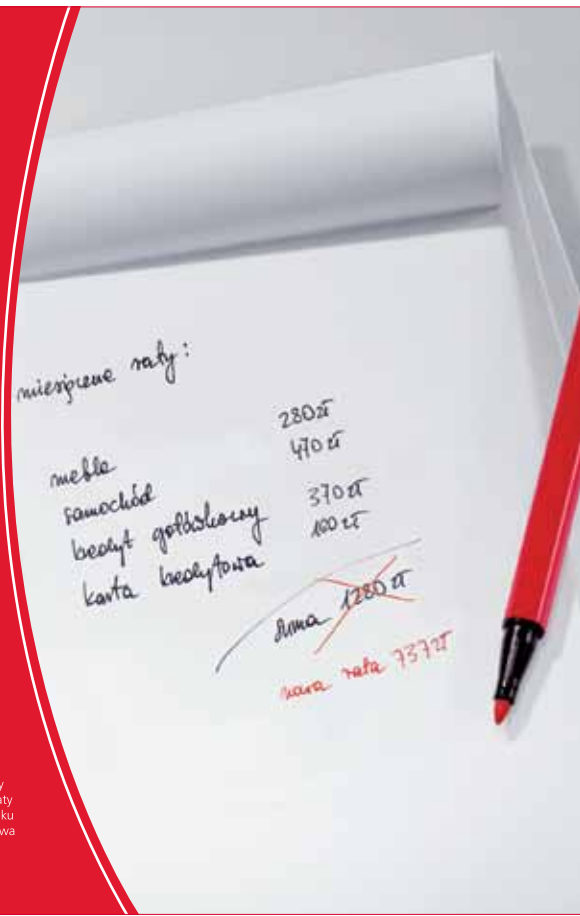 miesięczne raty:
meble 280 zł
samochód 470 zł
kredyt gotówkowy 370 zł
karta kredytowa 160 zł
suma 1280 zł
nowa rata 737 zł
y
aty
ku
wa